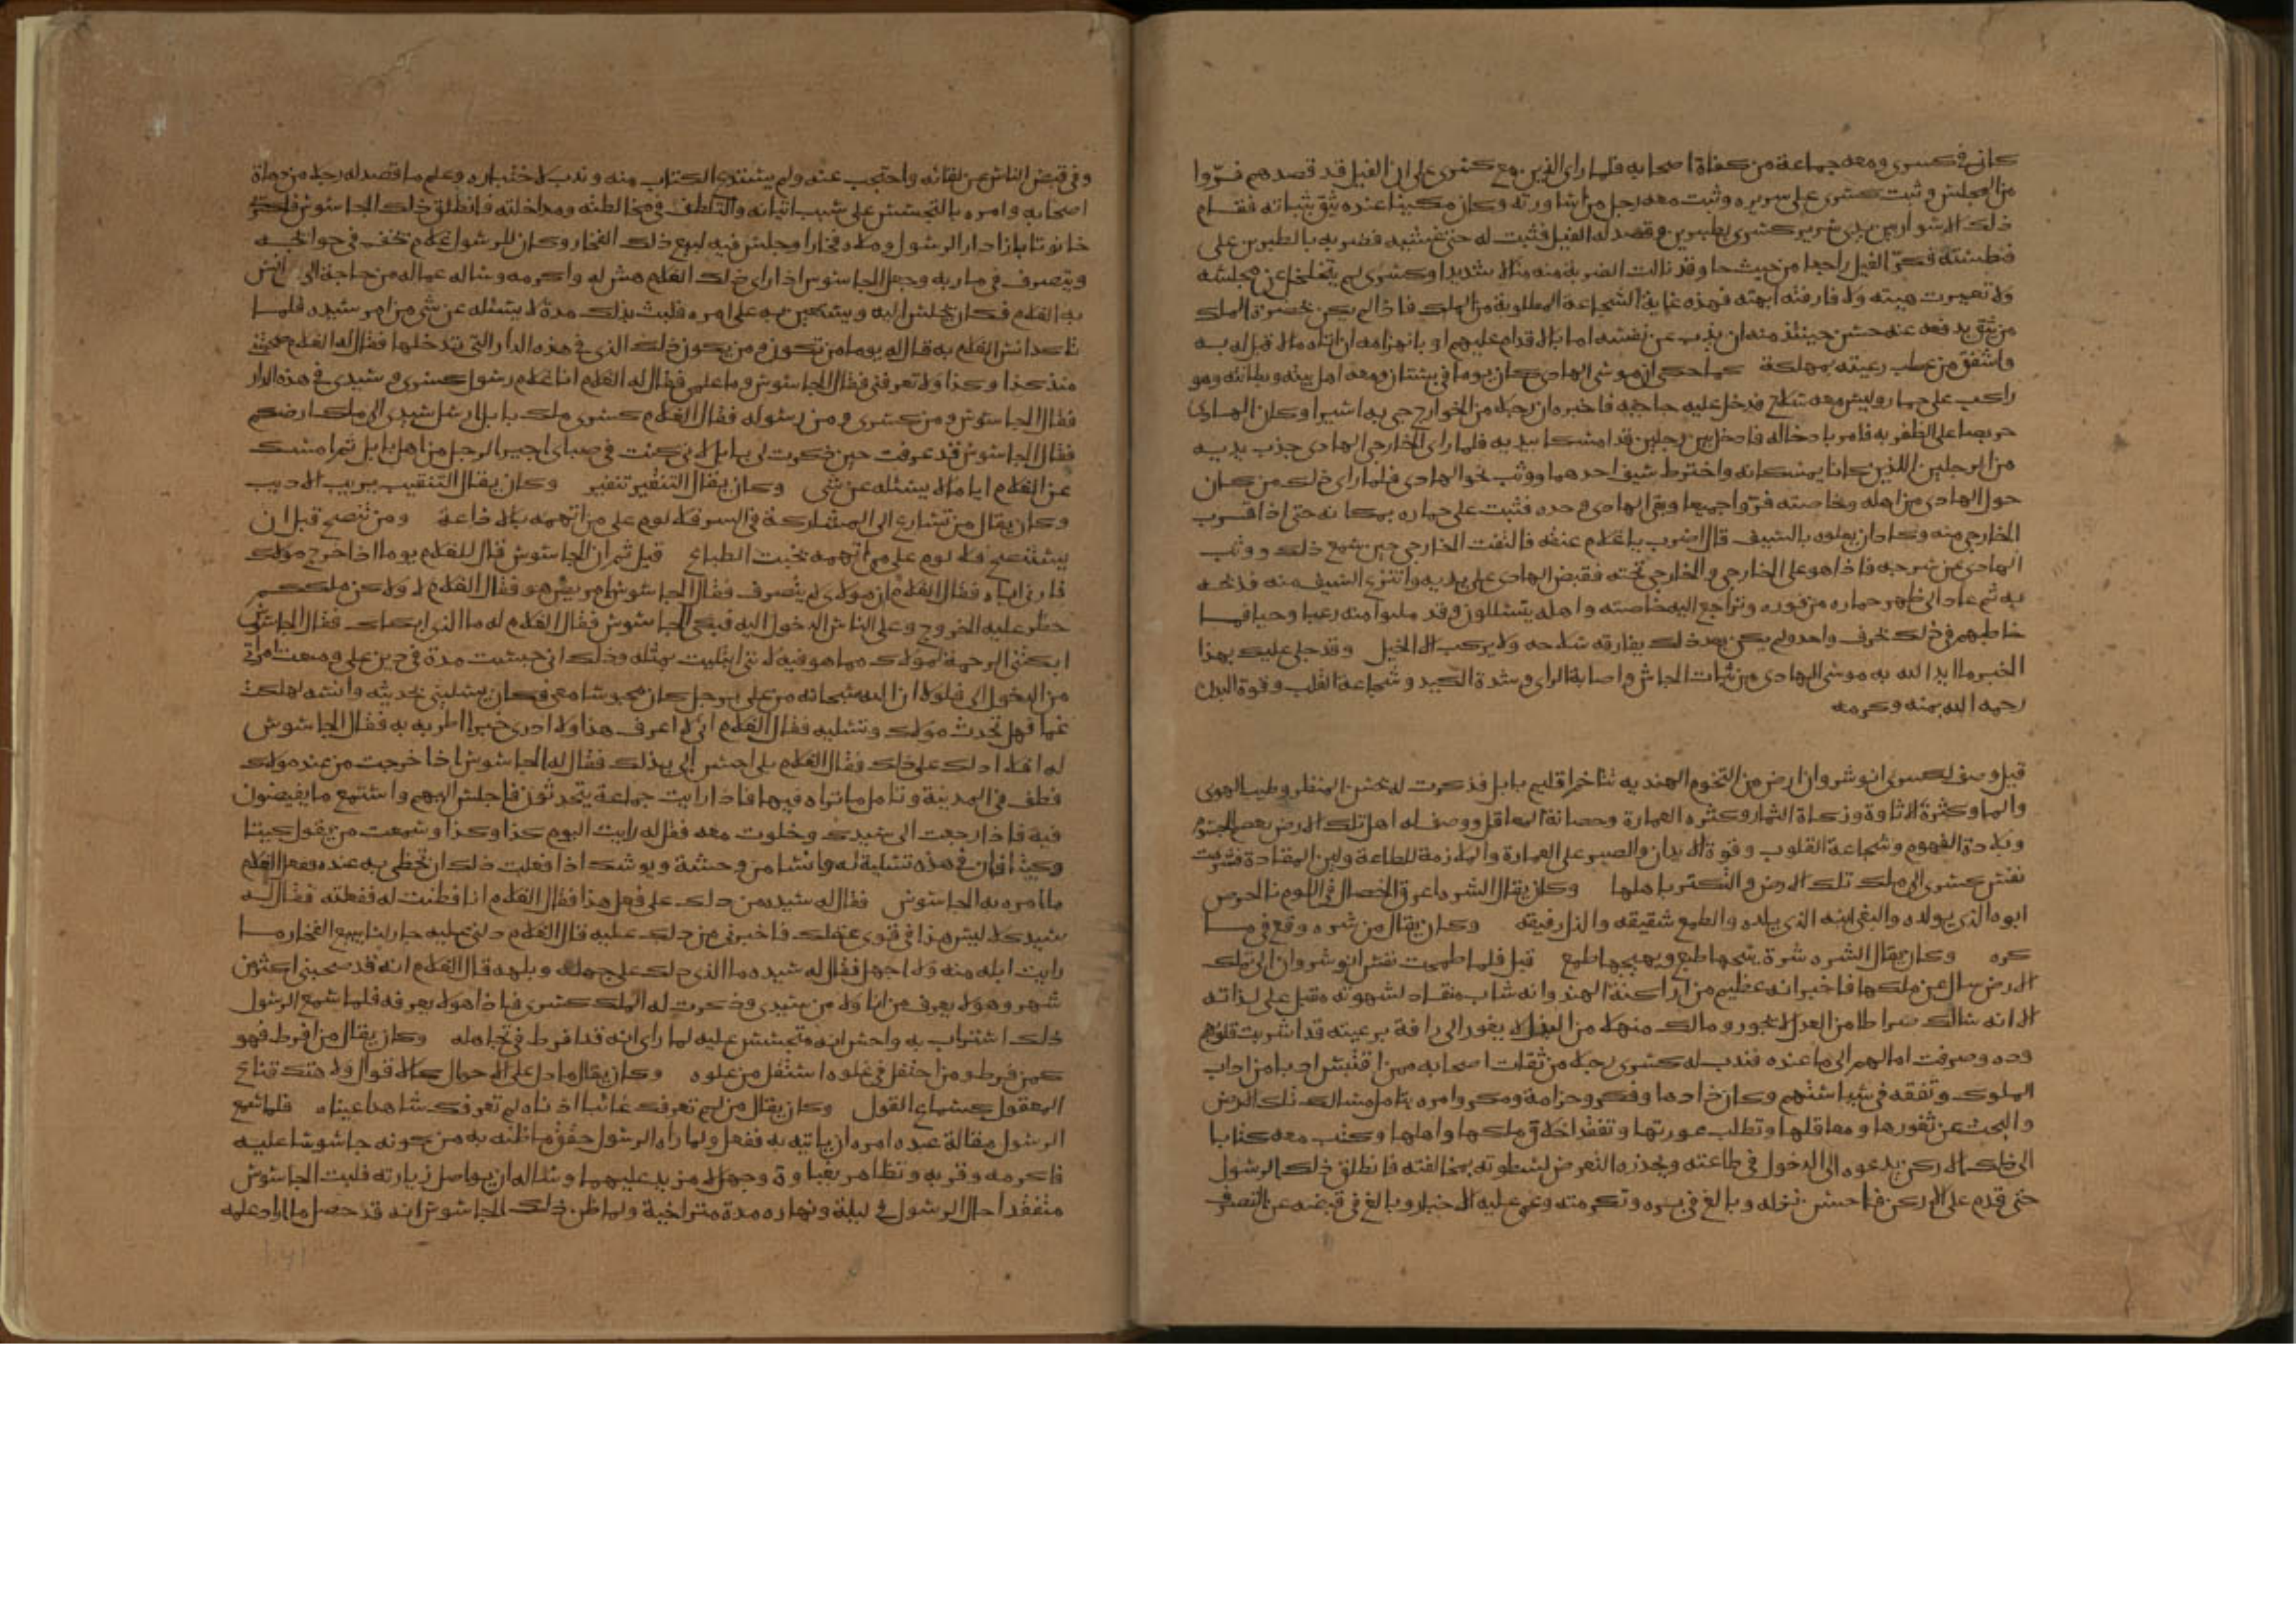 كان في كسرى ومعه جماعة من كفاة اصحابه فلما راى الذين مع كسرى على ان الفيل قد قصدهم فرّوا
من المجلس وثبت كسرى على سريره وثبت معه رجل من اساورته وكان مكينا عنده يثق بثباته فقام
ذلك الاسوار بين يدي سرير كسرى بطبرين وقصد له الفيل فثبت له حتى غشيه فضربه بالطبرين على
فطيسته فكرّ الفيل راجعا من حيث جا وقد نالت الضربة منه منالا شديدا وكسرى لم يتخلخل عن مجلسه
ولا تغيرت هيبته ولا فارقته ابهته فهذه غاية الشجاعة المطلوبة من الملك فاذا لم يكن بحضرة الملك
من يثق بدفعه عنه حسن حينئذ منه ان يذب عن نفسه اما بالاقدام عليهم او بانهزامه ان اتاه مالا قبل له به
واشفق من عطب رعيته بمهلكه كما حكي ان موسى الهادي كان يوما في بستان ومعه اهل بيته وبطانته وهو
راكب على حمار وليس معه سلاح فدخل عليه حاجبه فاخبره ان رجلا من الخوارج جي به اسيرا وكان الهادي
حريصا على الظفر به فامر بادخاله فادخل بين رجلين قد امسكا بيديه فلما راى الخارجي الهادي جذب يديه
من الرجلين اللذين كانا يمسكانه واخترط سيف احدهما ووثب نحو الهادي فلما راى ذلك من كان
حول الهادي من اهله وخاصته فرّوا جميعا وبقي الهادي وحده فثبت على حماره بمكانه حتى اذا قرب
الخارجي منه وكاد ان يعلوه بالسيف قال اضرب يا غلام عنقه فالتفت الخارجي حين سمع ذلك ووثب
الهادي عن سرجه فاذا هو على الخارجي والخارجي تحته فقبض الهادي على يديه وانتزع السيف منه فذبحه
به ثم عاد الى ظهر حماره من فوره وتراجع اليه خاصته واهله يتسللون وقد ملئوا منه رعبا وحيا فما
خاطبهم في ذلك بحرف واحد ولم يكن بعد ذلك يفارقه سلاحه ولا يركب الا الخيل وقد جلي عليك بهذا
الخبر ما ايد الله به موسى الهادي من ثبات الجاش واصابة الراي وشدة الكيد وشجاعة القلب وقوة البدن
رحمه الله بمنه وكرمه
قيل وصف لكسرى انوشروان ارض من التخوم الهنديه تتاخم اقليم بابل فذكرت له بحسن المنظر وطيب الهوى
والما وكثرة الاتاوة وزكاة الثمار وكثره العمارة وحصانة المعاقل ووصف له اهل تلك الارض بعظم الجسوم
وبلادة الفهوم وشجاعة القلوب وقوة الابدان والصبر على العمارة والملازمة للطاعة ولين المقادة فشرهت
نفس كسرى الى ملك تلك الارض والتكثر باهلها وكان يقال الشره اعرق الخصال في اللوم ‎لان الحرص
ابوه الذي يولده والبغي ابنه الذي يلده والطمع شقيقه والذل رفيقه وكان يقال من شره وقع فيما
كره وكان يقال الشره شرة ينتجها طبع ويهيجها طمع قيل فلما طمحت نفس انوشروان الى تلك
الارض سال عن ملكها فاخبر انه عظيم من اراكنة الهند وانه شاب منقاد لشهوته مقبل على لذاته
الا انه سالك صراطا من العدل لا يجور ومالك منهلا من البذل لا يغور الى رافة برعيته قد اشربت قلوبهم
وده وصرفت امالهم الى ما عنده فندب له كسرى رجلا من ثقات اصحابه ممن اقتبس ادبا من اداب
الملوك وتفقه في سياستهم وكان ذا دها وفكر وحزامة ومكر وامره بتامل مسالك تلك الارض
والبحث عن ثغورها ومعاقلها وتطلب عورتها وتفقد اخلاق ملكها واهلها وكتب معه كتابا
الى ذلك الاركن يدعوه الى الدخول في طاعته ويحذره التعرض لسطوته بمخالفته فانطلق ذلك الرسول
حتى قدم على الاركن فاحسن نزله وبالغ في بره وتكرمته وعمي عليه الاخبار وبالغ في قبضه عن التصرف
وفي قبض الناس عن لقائه واحتجب عنه ولم يستدع الكتاب منه وندب لاختباره وعلم ما قصد له رجلا من دهاة
اصحابه وامره بالتجسس على سبب اتيانه والتلطف في مخالطته ومداخلته فانطلق ذلك الجاسوس فاكترى
حانوتا بازا دار الرسول وملاه فخارا وجلس فيه لبيع ذلك الفخار وكان للرسول غلام يخف في حوائجه
ويتصرف في ماربه وجعل الجاسوس اذا راى ذلك الغلام هش له واكرمه وساله عما له من حاجة الى ان انس
به الغلام فكان يجلس اليه ويستعين به على امره فلبث بذلك مدة لا يسئله عن شي من امر سيده فلما
تاكد انس الغلام به قال له يوما من تكون ومن يكون ذلك الذي في هذه الدار التي تدخلها فقال له الغلام صحبتني
منذ كذا وكذا ولا تعرفني فقال الجاسوس وما علمي فقال له الغلام انا غلام رسول كسرى وسيدي في هذه الدار
فقال الجاسوس ومن كسرى ومن رسوله فقال الغلام كسرى ملك بابل ارسل سيدي الى ملك ارضكم
فقال الجاسوس قد عرفت حين ذكرت لي بابل لاني كنت في صباي اجيرا لرجل من اهل بابل ثم امسك
عن الغلام اياما لا يسئله عن شي وكان يقال التنقير تنفير وكان يقال التنقيب يريب الاديب
وكان يقال من تسارع الى المشاركة في السر فلا لوم على من اتهمه بالاذاعة ومن نصح قبل ان
يستنصح فلا لوم على من اتهمه بخبث الطباع قيل ثم ان الجاسوس قال للغلام يوما اذا خرج مولاك
فارني اياه فقال الغلام ان مولاي لا يتصرف فقال الجاسوس امريض هو فقال الغلام لا ولا كن ملككم
حظر عليه الخروج وعلى الناس الدخول اليه فبكى الجاسوس فقال الغلام له ما الذي ابكاك فقال الجاسوس
ابكتني الرحمة لمولاك مما هو فيه لانني ابتليت بمثله وذلك اني حبست مدة في دين علي ومنعت امراتي
من الدخول الي فلولا ان الله سبحانه من علي برجل كان محبوسا معي فكان يسليني بحديثه وانسه لهلكت
غما فهل تحدث مولاك وتسليه فقال الغلام اني لا اعرف هذا ولا ادري خبرا اطربه به فقال الجاسوس
له افلا ادلك على ذلك فقال الغلام بلى احسن الي بذلك فقال له الجاسوس اذا خرجت من عند مولاك
فطف في المدينة وتامل ما تراه فيها فاذا رايت جماعة يتحدثون فاجلس اليهم واستمع ما يفيضون
فيه فاذا رجعت الى سيدك وخلوت معه فقل له رايت اليوم كذا وكذا وسمعت من يقول كيتا
وكيتا فان في هذه تسلية له وانسا من وحشة ويوشك اذا فعلت ذلك ان تحظى به عنده ففعل الغلام
ما امره به الجاسوس فقال له سيده من دلك على فعل هذا فقال الغلام انا فطنت له ففعلته فقال له
سيده كلا ليس هذا في قوى عقلك فاخبرني من دلك عليه قال الغلام دلني عليه جار لنا يبيع الفخار ما
رايت ابله منه ولا اجهل فقال له سيده وما الذي دلك على جهله وبلهه قال الغلام انه قد صحبني اكثر من
شهر وهو لا يعرف من انا ولا من سيدي وذكرت له الملك كسرى فاذا هو لا يعرفه فلما سمع الرسول
ذلك استراب به واحس انه متجسس عليه لما راى انه قد افرط في تجاهله وكان يقال من افرط فهو
كمن فرط ومن احتفل في غلوه استقل من علوه وكان يقال ما دل على الاحوال كالاقوال ولا هتك قناع
المعقول كسماع القول وكان يقال من لم تعرفه غائبا اذناه لم تعرفك شاهدا عيناه فلما سمع
الرسول مقالة عبده امره ان ياتيه به ففعل ولما راه الرسول حقق ما ظنه به من كونه جاسوسا عليه
فاكرمه وقربه وتظاهر بغباوة وجهل لا مزيد عليهما وساله ان يواصل زيارته فلبث الجاسوس
متفقدا حال الرسول في ليله ونهاره مدة متراخية ولما ظن ذلك الجاسوس انه قد حصل ما اراد علمه